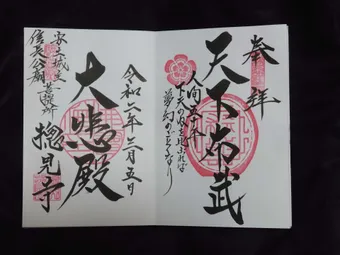 奉拝
天下布武
人間五十年
下天の内を過ぶれば
夢幻の如くなり
令和二年三月五日
大悲殿
安土城址
信長公廟
摠見寺